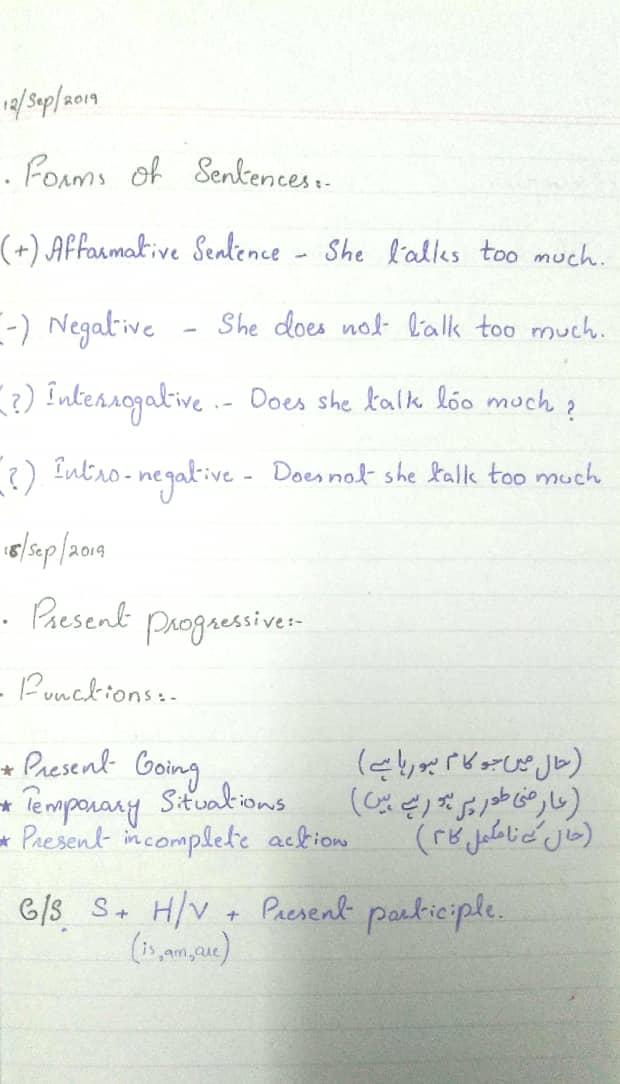 12/Sep/2019
. Forms of Sentences:-
(+) Affarmative Sentence - She talks too much.
(-) Negative - She does not talk too much.
(?) Interrogative .- Does she talk too much ?
(?) Intro-negative - Does not she talk too much
18/Sep/2019
. Present progressive:-
- Functions:-
* Present Going (حال میں جو کام ہو رہا ہے)
* Temporary Situations (عارضی طور پر ہو رہے ہیں)
* Present incomplete action (حال کے نامکمل کام)
G/S. S + H/V + Present participle.
(is,am,are)